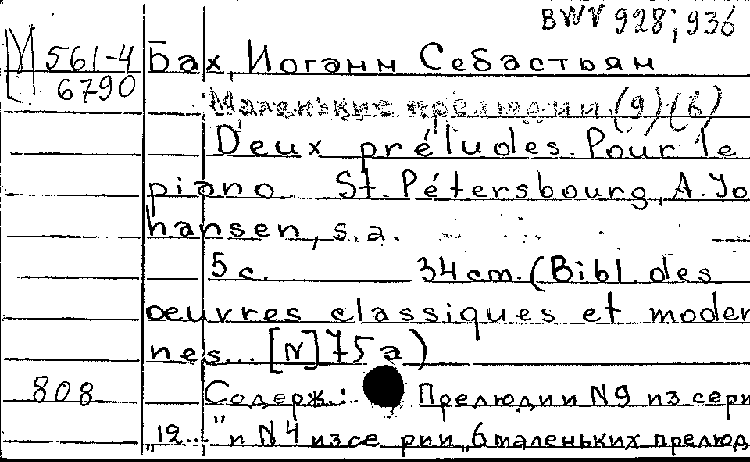 BWV 928; 936
М 561-4 Бах, Иоганн Себастьян
6790
Маленькие прелюдии (9) (6)
Deux préludes. Pour le
piano. St. Pétersbourg, A. Jo
hansen, s.a.
5 с. 34 cm. (Bibl des
oeuvres classiques et moder
nes... [N] 75a)
808 Содерж.: Прелюдии N9 из сери
„12..." и N4 из се рии „6 маленьких прелюд